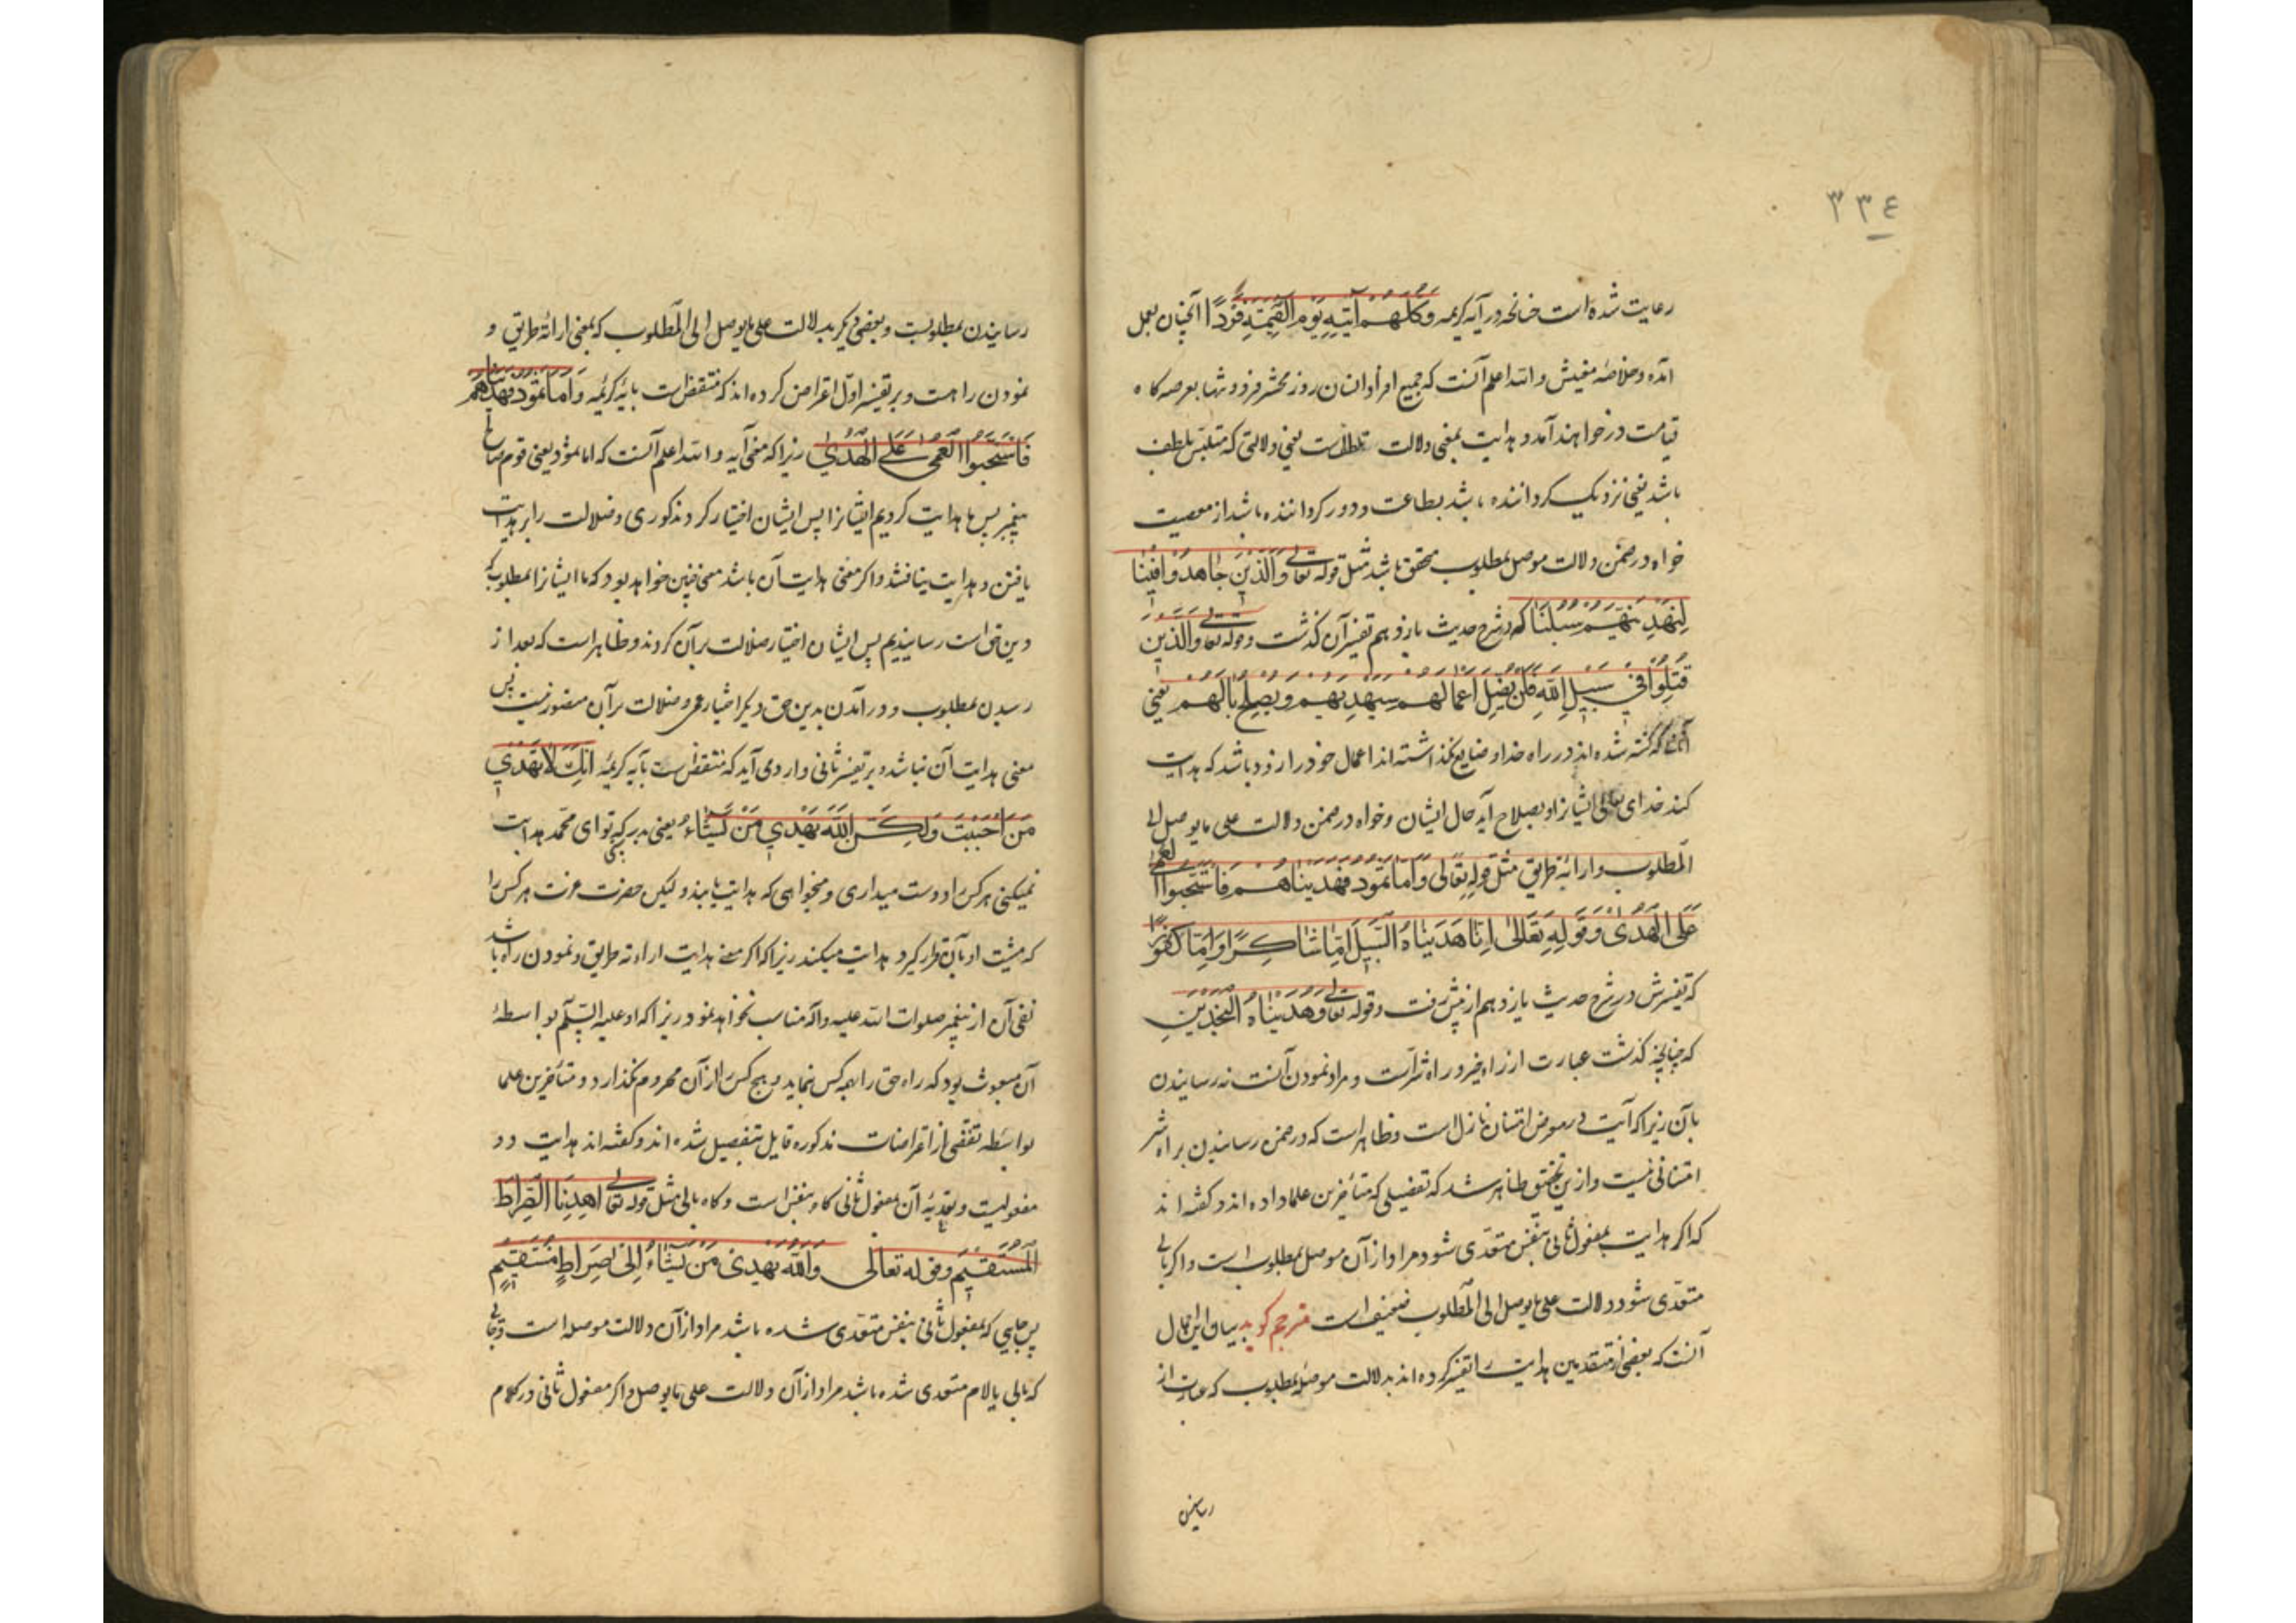 ٣٣٤
رعایت شده است چنانچه در آیه کریمه وَكُلُّهُمْ آتِيهِ يَوْمَ الْقِيٰمَةِ فَرْدًا آنچنان بعمل
آمده و خلاصه معنیش و الله اعلم آنست که جمیع افراد انسان روز محشر فرد و تنها بعرصه کاه
قیامت در خواهند آمد و هدایت بمعنی دلالت تلطف است یعنی دلالتی که متلبس بلطف
باشد یعنی نزدیک کرداننده باشد بطاعت و دور کرداننده باشد از معصیت
خواه در ضمن دلالت موصل بمطلوب محقق باشد مثل قوله تعالی وَالَّذِينَ جَاهَدُوا فِينَا
لَنَهْدِيَنَّهُمْ سُبُلَنَا که در شرح حدیث یازدهم تفسیر آن کذشت و قوله تعالی وَالَّذِينَ
قُتِلُوا فِي سَبِيلِ اللَّهِ فَلَنْ يُضِلَّ أَعْمَالَهُمْ سَيَهْدِيهِمْ وَيُصْلِحُ بَالَهُمْ یعنی
آنانی که کشته شده اند در راه خدا و ضایع نکذاشته اند اعمال خود را زود باشد که هدایت
کند خدای تعالی ایشانرا و بصلاح آید حال ایشان و خواه در ضمن دلالت علی ما یوصل الی
المطلوب و ارائه طریق مثل قوله تعالی وَأَمَّا ثَمُودُ فَهَدَيْنَاهُمْ فَاسْتَحَبُّوا الْعَمَى
عَلَى الْهُدَى وَقَوْلِهِ تَعَالَى إِنَّا هَدَيْنَاهُ السَّبِيلَ إِمَّا شَاكِرًا وَإِمَّا كَفُورًا
که تفسیرش در شرح حدیث یازدهم از پیش رفت و قوله تعالی وَهَدَيْنَاهُ النَّجْدَيْنِ
که چنانچه کذشت عبارت از راه خیر و راه شر است و مراد نمودن آنست نه رسانیدن
بآن زیرا که آیت در معرض امتنان نازل است و ظاهر است که در ضمن رسانیدن براه شر
امتنانی نیست و ازین تحقیق ظاهر شد که تفصیلی که متأخرین علما داده اند و کفته اند
که اکر هدایت بمفعول ثانی بنفس متعدی شود مراد از آن موصل بمطلوب است و اکر بالی
متعدی شود دلالت علی ما یوصل الی المطلوب ضعیف است مترجم کوید بیان این مقال
آنست که بعضی از متقدمین هدایت را تفسیر کرده اند بدلالت موصله بمطلوب که عبارت از
رسانیدن
رسانیدن بمطلوبست و بعضی دیکر بدلالت علی ما یوصل الی المطلوب که بمعنی ارائه طریق و
نمودن راهست و بر تفسیر اوّل اعتراض کرده اند که منتقض است بآیه کریمه وَأَمَّا ثَمُودُ فَهَدَيْنَاهُمْ
فَاسْتَحَبُّوا الْعَمَى عَلَى الْهُدَى زیرا که معنی آیه و الله اعلم آنست که اما ثمود یعنی قوم صالح
پیغمبر پس ما هدایت کردیم ایشانرا پس ایشان اختیار کردند کوری و ضلالت را بر هدایت
یافتن و هدایت نیافتند و اکر معنی هدایت آن باشد معنی چنین خواهد بود که ما ایشانرا بمطلوب که
دین حق است رسانیدیم پس ایشان اختیار ضلالت بر آن کردند و ظاهر است که بعد از
رسیدن بمطلوب و در آمدن بدین حق دیکر اختیار عمی و ضلالت بر آن متصور نیست پس
معنی هدایت آن نباشد و بر تفسیر ثانی وارد می آید که منتقض است بآیه کریمه إِنَّكَ لَا تَهْدِي
مَنْ أَحْبَبْتَ وَلَكِنَّ اللَّهَ يَهْدِي مَنْ يَشَاءُ یعنی بدرستی که تو ای محمد هدایت
نمیکنی هر کس را دوست میداری و میخواهی که هدایت یابند و لیکن حضرت عزت هر کس را
که مشیت او بآن قرار کیرد هدایت میکند زیرا که اکر معنی هدایت اراءه طریق و نمودن راه باشد
نفی آن از پیغمبر صلوات الله علیه و آله مناسب نخواهد نمود زیرا که او علیه السّلم بواسطهٔ
آن مبعوث بود که راه حق را بهمه کس نماید و هیچ کس را از آن محروم نکذارد و متأخرین علما
بواسطه تفصی از اعتراضات مذکوره قایل بتفصیل شده اند و کفته اند هدایت دو
مفعولیست و تعدیهٔ آن بمفعول ثانی کاه بنفس است و کاه بالی مثل قوله تعالی اهْدِنَا الصِّرَاطَ
الْمُسْتَقِيمَ وقوله تعالى وَاللَّهُ يَهْدِي مَنْ يَشَاءُ إِلَى صِرَاطٍ مُسْتَقِيمٍ
پس جایی که بمفعول ثانی بنفس متعدی شده باشد مراد از آن دلالت موصله است و جایی
که بالی یا لام متعدی شده باشد مراد از آن دلالت علی ما یوصل و اکر مفعول ثانی در کلام